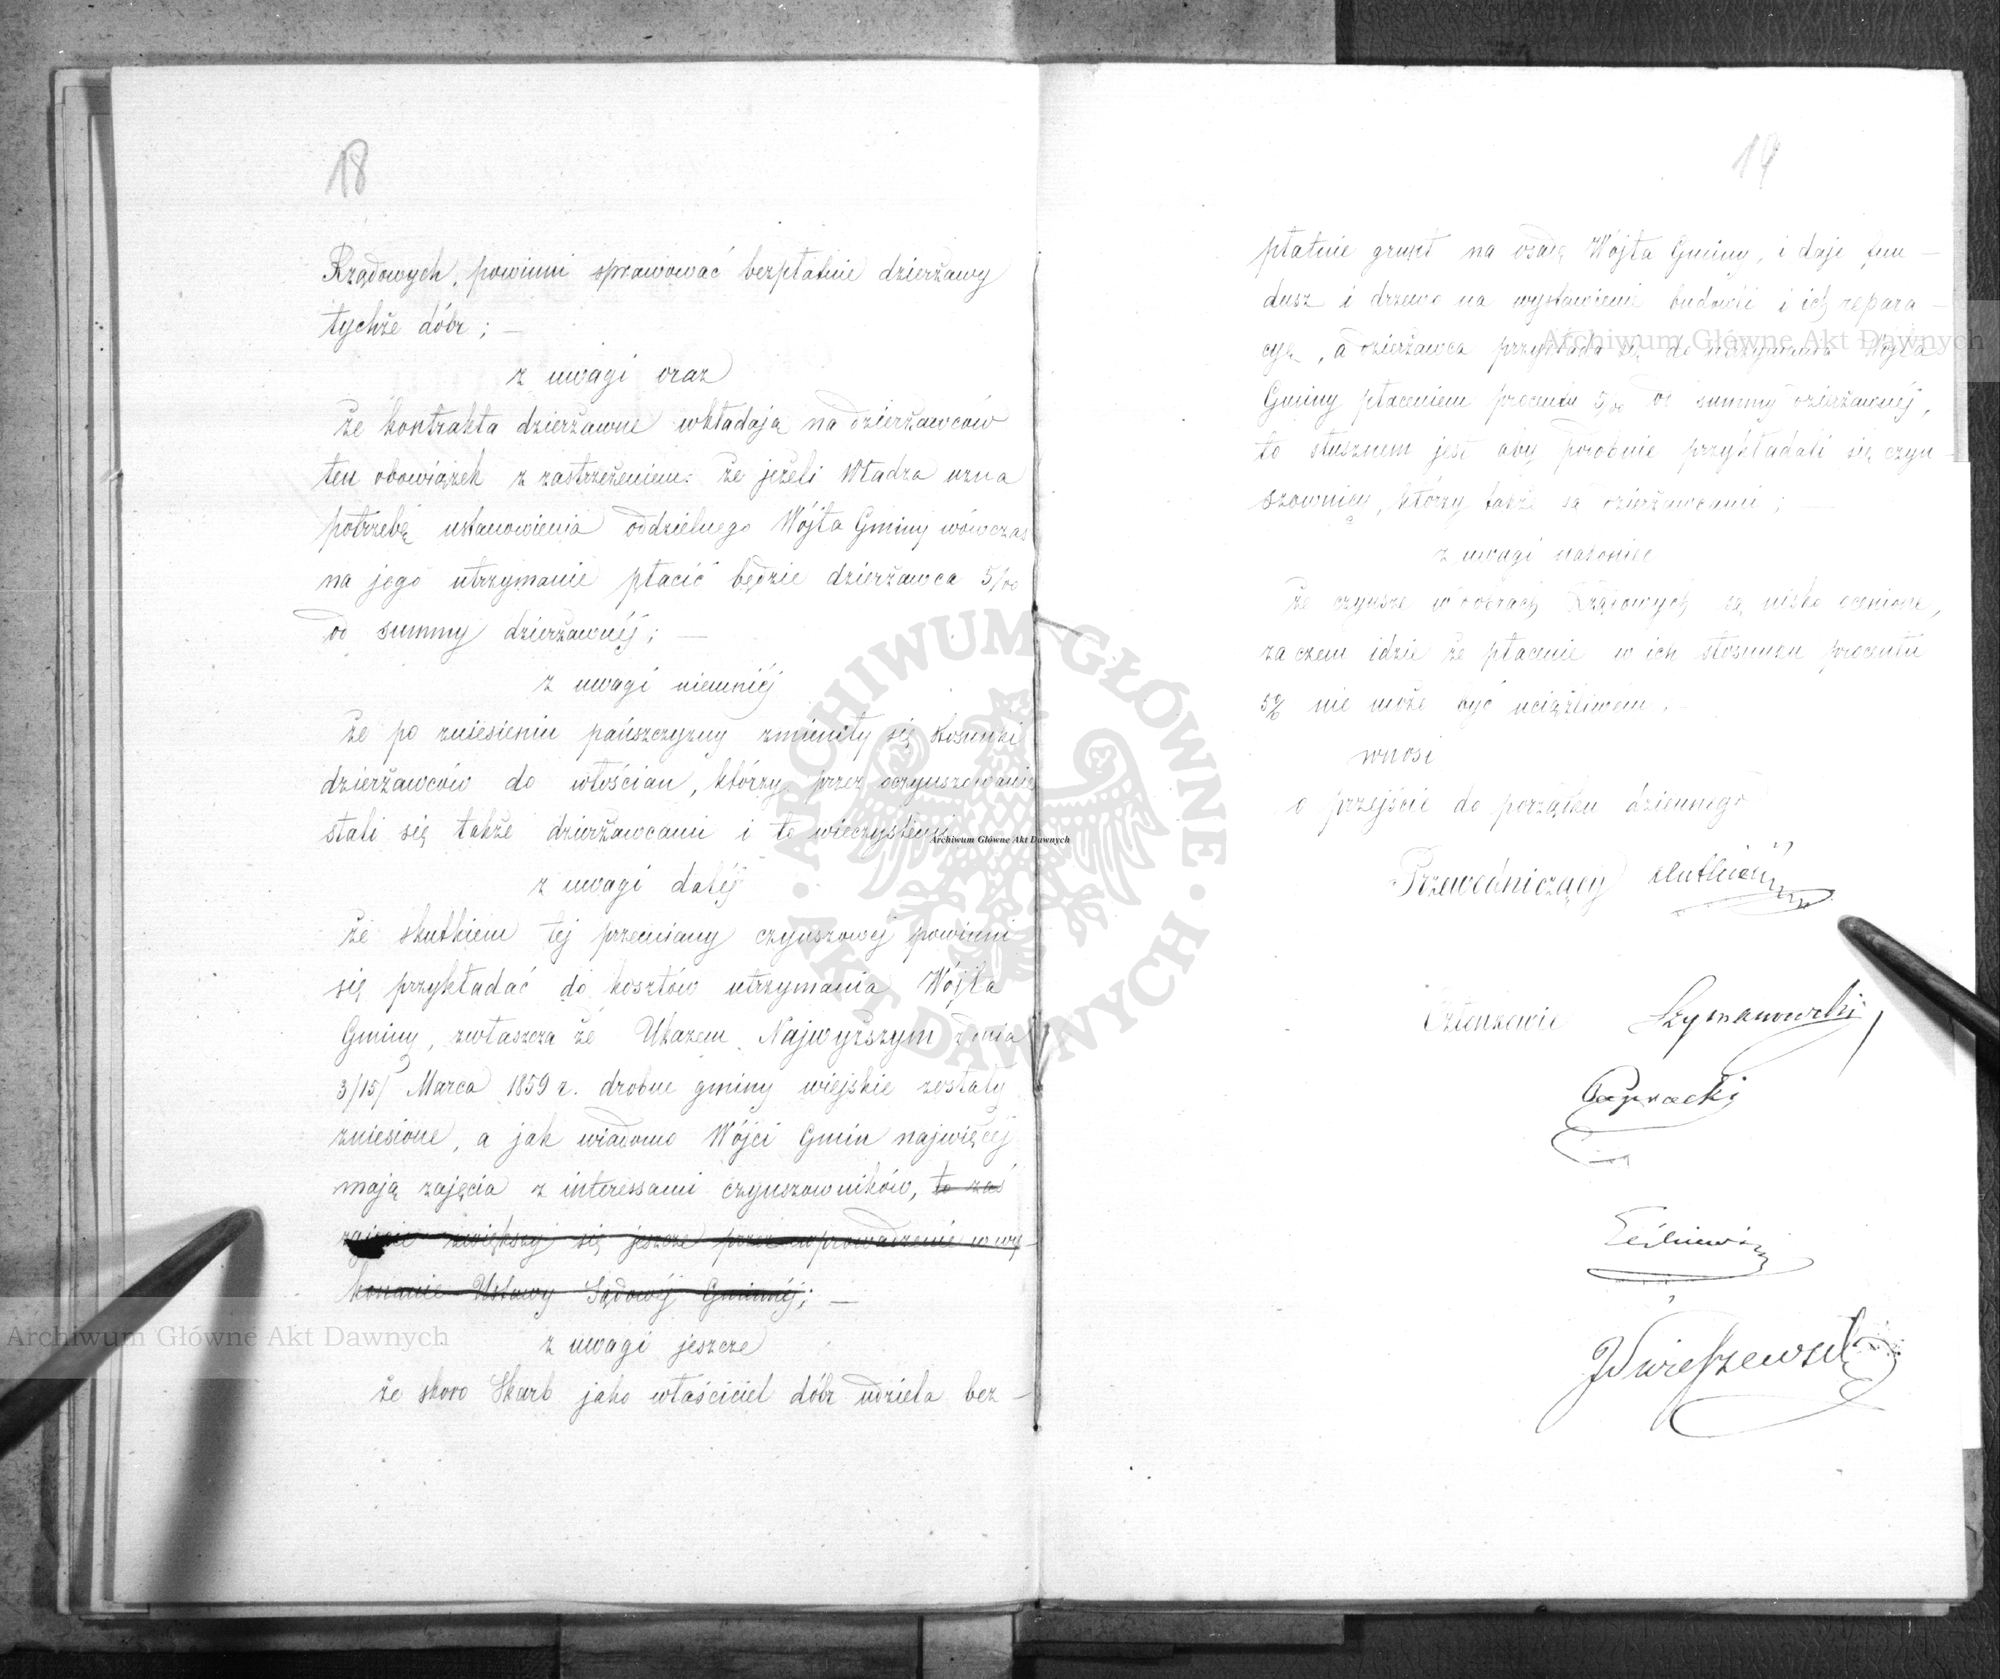 18
Rządowych, powinni sprawować bezpłatnie dzierżawy
tychże dóbr; —
z uwagi oraz
że kontrakta dzierżawne wkładają na dzierżawców
ten obowiązek z zastrzeżeniem: że jeżeli Władza uzna
potrzebę ustanowienia oddzielnego Wójta Gminy wówczas
na jego utrzymanie płacić będzie dzierżawca 5/00
od summy dzierżawnéj; —
z uwagi niemniéj
że po zniesieniu pańszczyzny zmieniły się stosunki
dzierżawców do włościan, którzy przez oczynszowanie
stali się także dzierżawcami i to wieczystemi
z uwagi daléj
że skutkiem téj przemiany czynszowéj powinni
się przykładać do kosztów utrzymania Wójta
Gminy, zwłaszcza że Ukazem Najwyższym z dnia
3/15/ Marca 1859 r. drobne gminy wiejskie zostały
zniesione, a jak wiadomo Wójci Gmin najwięcéj
mają zajęcia z interessami czynszowników, to zaś
zajęcie zwiększy się jeszcze przez wprowadzenie w wy-
konanie Ustawy Sądowéj Gminnéj; —
z uwagi jeszcze
że skoro Skarb jako właściciel dóbr udziela bez-
19
płatnie grunt na osadę Wójta Gminy, i daje fun-
dusz i drzewo na wystawienie budowli i ich repara-
cyę, a dzierżawca przykłada się do utrzymania Wójta
Gminy płaceniem procentu 5/00 od summy dzierżawnéj,
to słusznem jest aby podobnie przykładali się czyn-
szownicy, którzy także są dzierżawcami; —
z uwagi nakoniec
że czynsze w dobrach Rządowych są nisko ocenione,
za czem idzie że płacenie w ich stosunku procentu
5% nie może być uciążliwem. —
wnosi
o przejście do porządku dziennego
Przewodniczący
Członkowie Szymanowski
Paprocki
Archiwum Główne Akt Dawnych
Archiwum Główne Akt Dawnych
Archiwum Główne Akt Dawnych
ARCHIWUM GŁÓWNE · AKT DAWNYCH ·